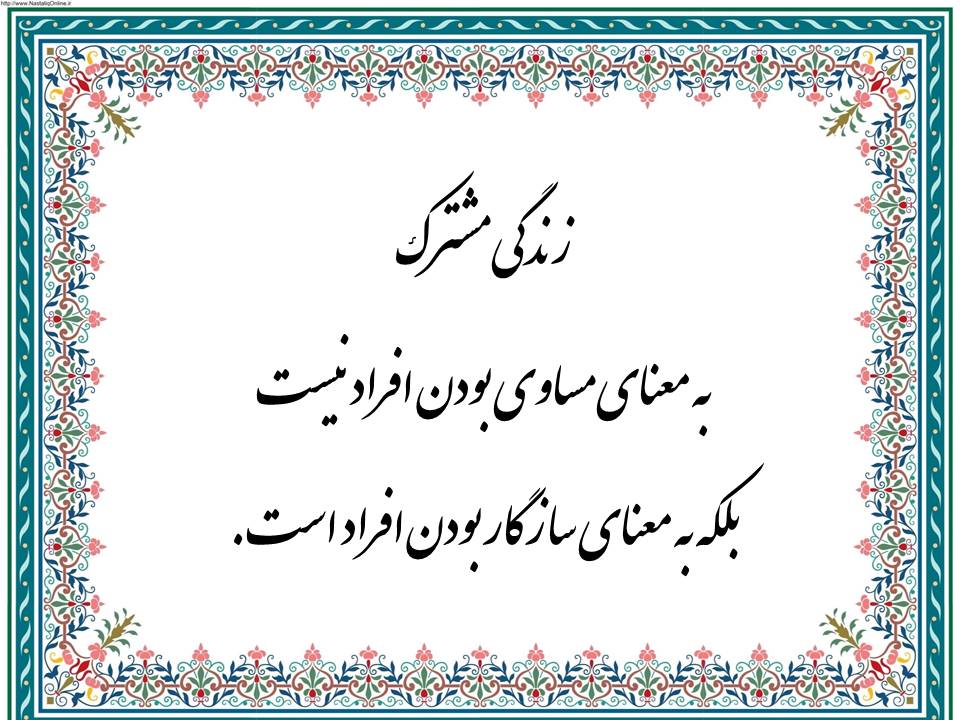 http://www.NastaliqOnline.ir
زندگی مشترک
به معنای مساوی بودن افراد نیست
بلکه به معنای سازگار بودن افراد است.